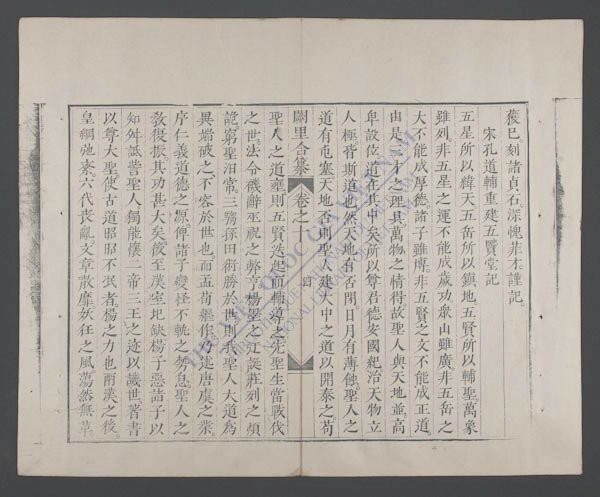 復已刻諸貞石深愧菲才謹記
宋孔道輔重建五賢堂記
五星所以緯天五岳所以鎮地五賢所以輔聖萬象
雖列非五星之運不能成歲功衆山雖廣非五岳之
大不能成厚德諸子雖博非五賢之文不能成正道
由是三才之理具萬物之情得故聖人與天地並高
卑設位道在其中矣所以尊君德安國紀治天物立
人極皆斯道也然天地有否閉日月有薄蝕聖人之
道有屯塞天地否則聖人建大中之道以開泰之苟
闕里合纂 卷之十 四
聖人之道壅則五賢迭起而輔導之先聖生當戰伐
之世法令磯辭巫祝之弊亨楊墨之迂誕莊列之頗
詭窮聖汨常三騶孫田術勝於世則我聖人大道為
異端破之不容於世也而孟荀繼作乃述唐虞之業
序仁義道德之源俾諸子變怪不軌之勢息聖人之
教復振其功甚大矣後至漢室圮缺楊子惡諸子以
知舛詆訾聖人獨能懷二帝三王之迹以譏世著書
以尊大聖使古道昭昭不泯者楊之力也爾漢之後
皇綱弛紊六代喪亂文章散靡妖狂之風蕩然無革